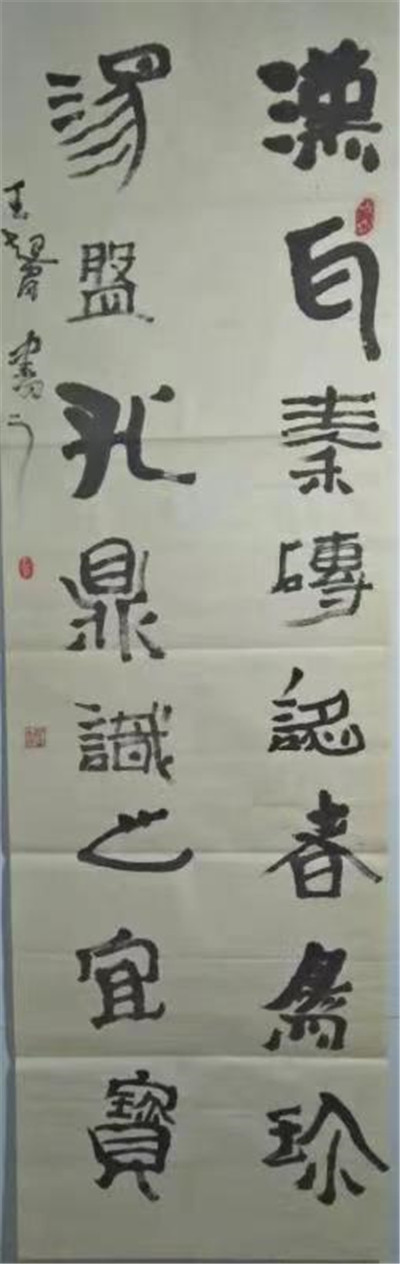 漢瓦秦磚認者為珍
湯盤孔鼎識之宜寶
書